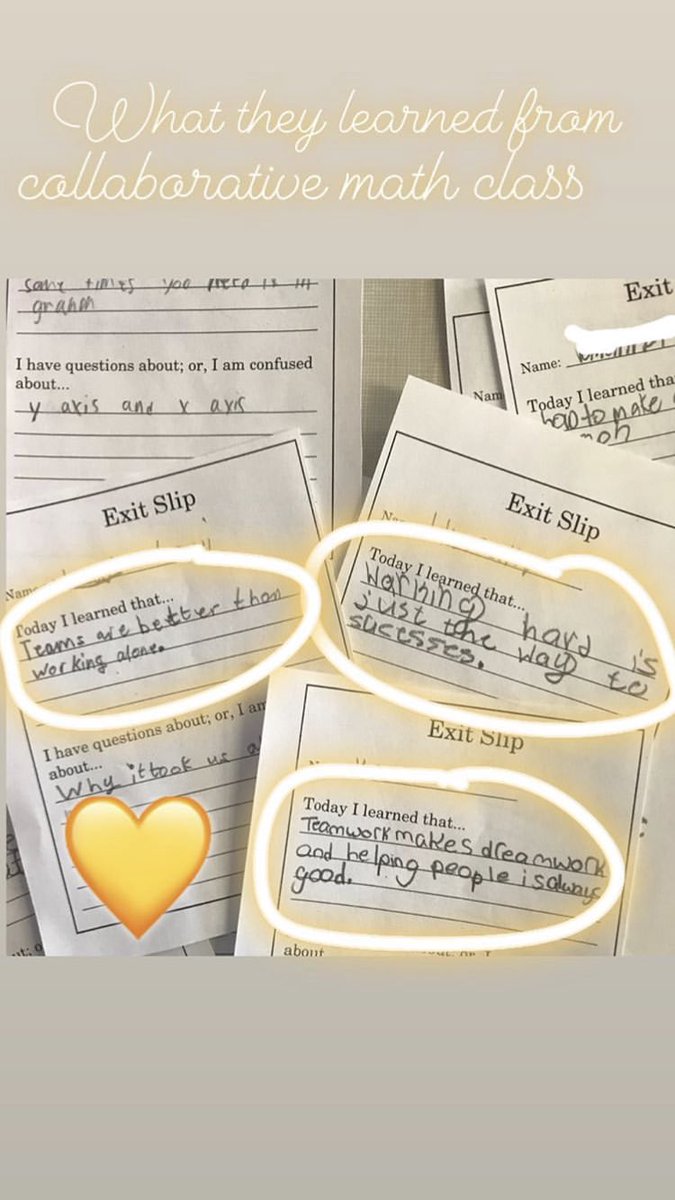 What they learned from
collaborative math class
same times you need is in
graph
I have questions about; or, I am confused
about...
y axis and x axis
Exit
Name:
Today I learned tha
had to make
Nam
Exit Slip
Name
Today I learned that...
Teams are better than
working alone.
I have questions about; or, I am
about...
Why it took us
Exit Slip
Na
Today I learned that...
Warking hard is
just the way to
sucesses.
Exit Slip
Today I learned that...
Teamwork makes dreamwork
and helping people is always
good.
about